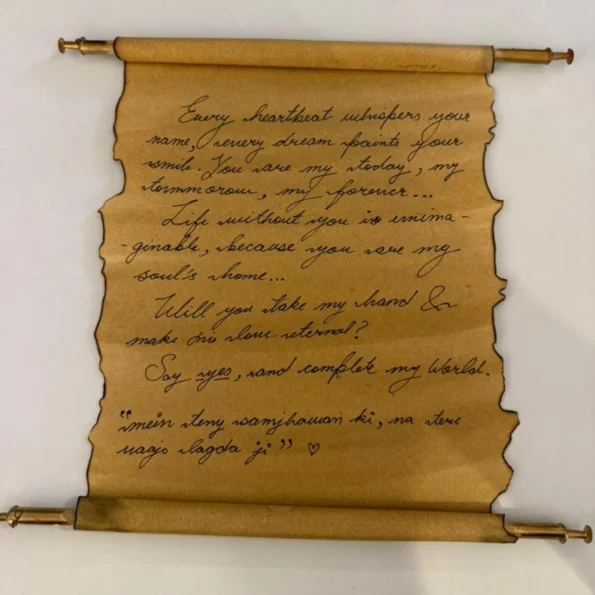 Every heartbeat whispers your
name, every dream paints your
smile. You are my today, my
tommorow, my forever...
Life without you is unima-
-ginable, because you are my
soul's home...
Will you take my hand &
make this love eternal?
Say yes, and complete my World.
"mein teny samjhawan ki, na tere
vaajo lagda ji" ♡